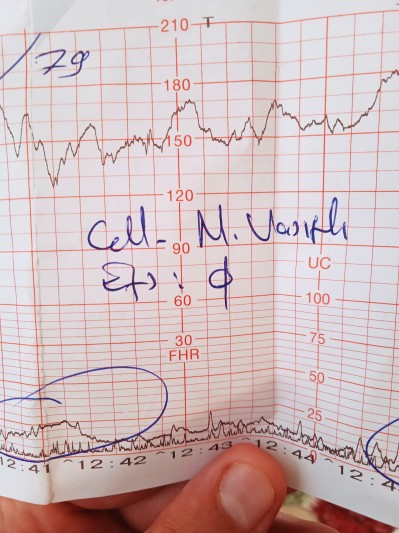 210 T
/79
180
150
120
Cell - M.
90
UC
: ϕ
60
100
75
30
FHR
50
25
0
12:41 12:42 12:43 12:44 12:4